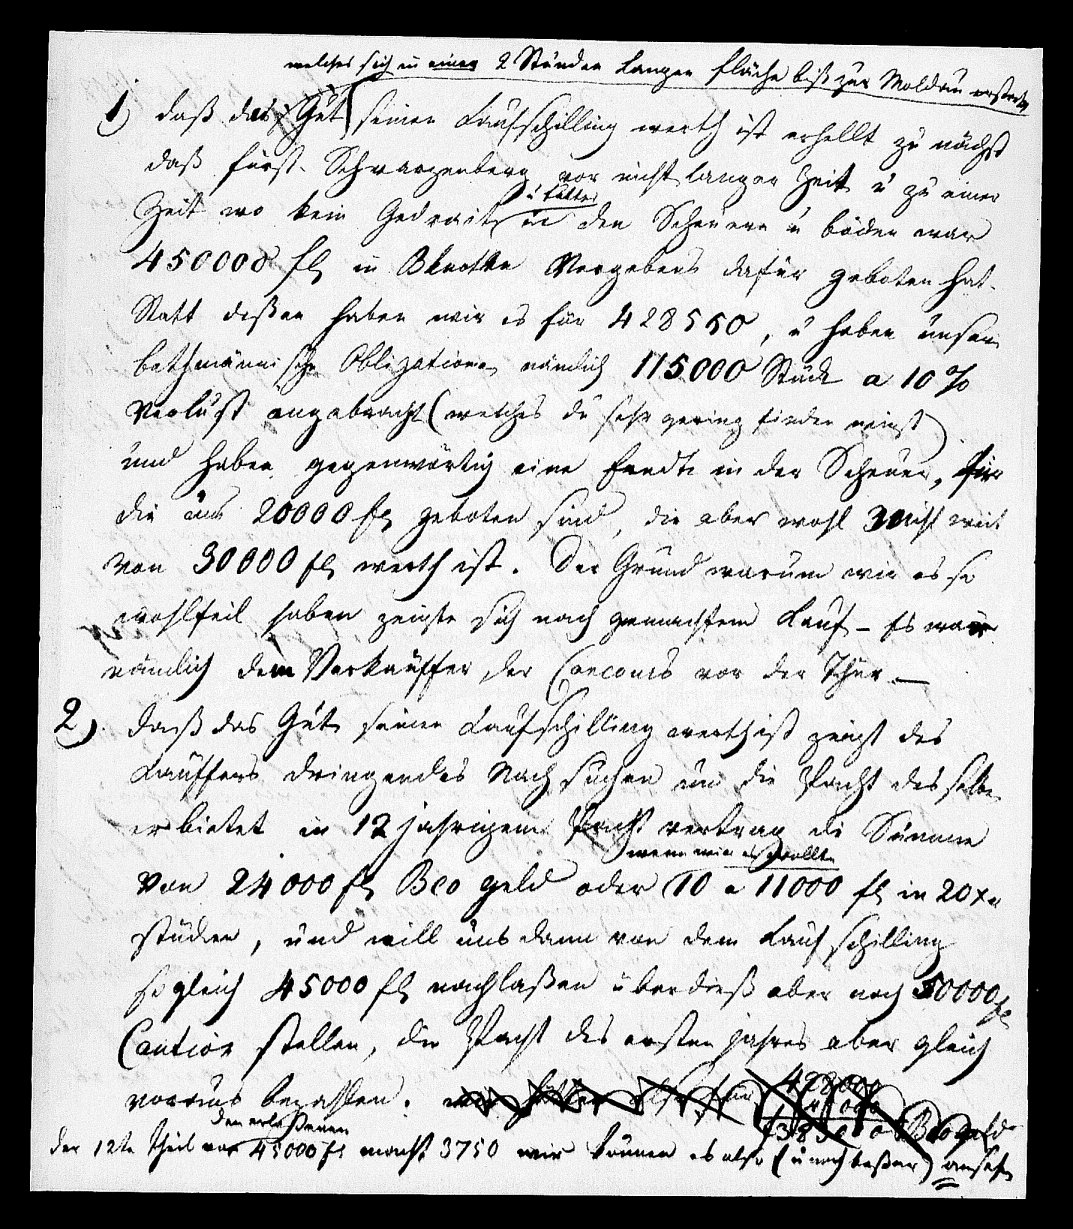 welches sich in einer 2 Stunden langen fläche bis zur Moldau erstreckt
1) daß das Gut seinen Kaufschilling werth ist erhellt zu nächst
daß fürst. Schwarzenberg vor nicht langer Zeit u zu einer
Zeit wo kein Getrait u futter in den Scheuern u böden war
450000 fl in Bknotten Vergebens dafür geboten hat.
Statt deßen haben wir es für 428550, u haben unsere
bethmännische Obligationen nämlich 115000 Stück a 10 %
Verlust angebracht (welches du sehr gering finden wirst)
und haben gegenwärtig eine Erndte in der Scheuer, für
die uns 20000 fl geboten sind, die aber wohl nicht weit
von 30000 fl werth ist. Der Grund warum wir es so
wohlfeil haben zeigte sich nach gemachtem Kauf – Es war
nämlich dem Verkäuffer der Concours vor der Thür. —
2) daß das Gut seinen Kaufschilling werth ist zeigt des
Käuffers dringendes Nachsuchen um die Pacht des selben
er bietet in 12 jährigem Pacht vertrag die Summe
wenn wir es wollten
von 24000 fl Bco geld oder 10 a 11000 fl in 20 xr
stücken, und will uns dann von dem Kauf schilling
sogleich 45000 fl nachlaßen überdieß aber noch 50000 fl
Caution stellen, die Pacht des ersten jahres aber gleich
voraus bezahlen. 428000
Bco geld
den erlaßenen
der 12te Theil von 45000 fl macht 3750 wir können es also (u noch beßer) ansehn